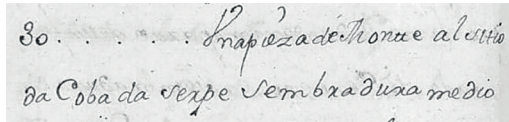 30. . . . . . Vna pieza de Monte al sitio
da Coba da serpe sembradura medio